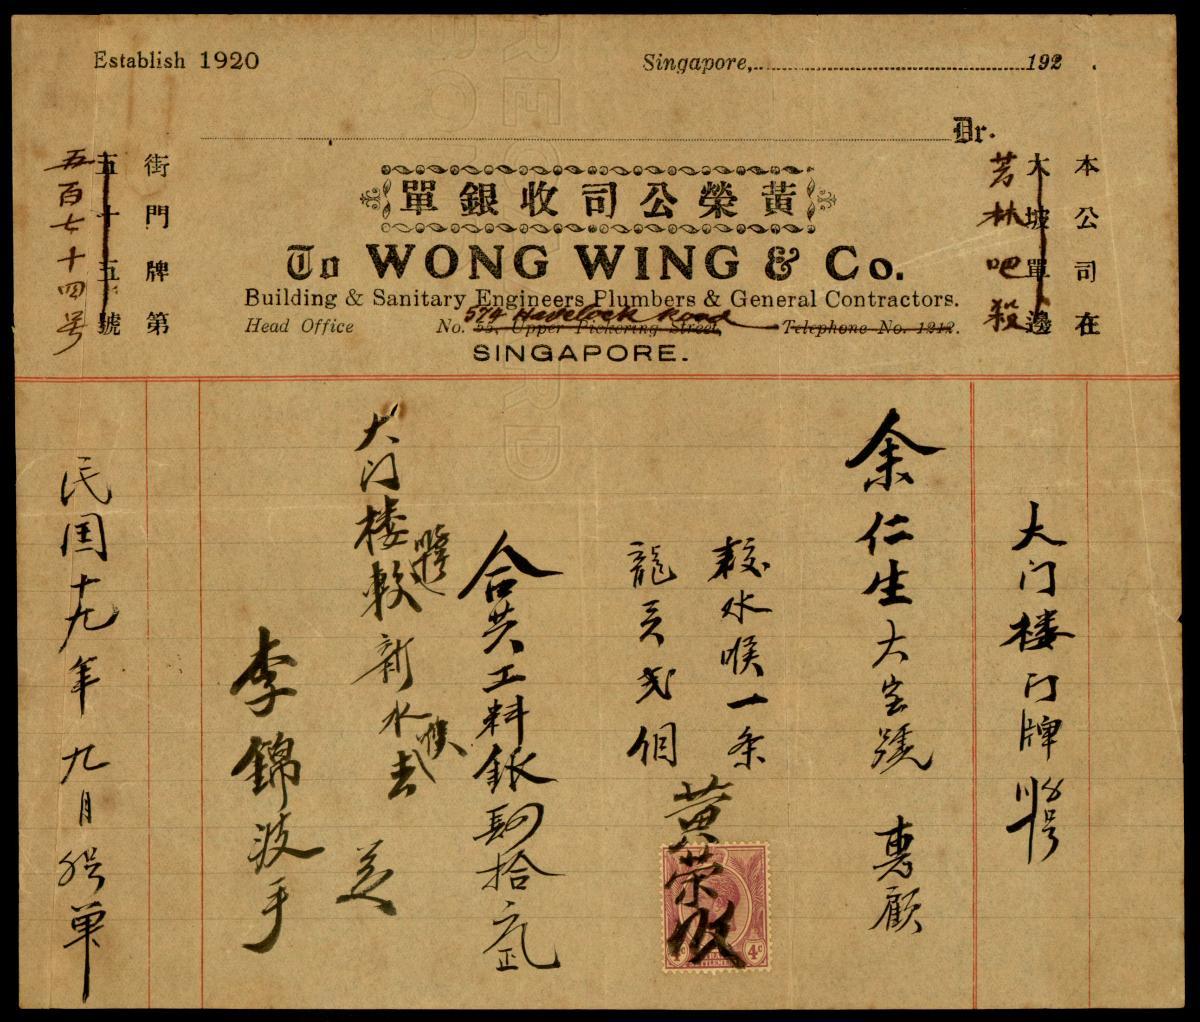 Establish 1920
Singapore, 192 .
Dr.
黃榮公司收銀單
To WONG WING & Co.
Building & Sanitary Engineers Plumbers & General Contractors.
574 Havelock Road
Head Office No. 55, Upper Pickering Street, Telephone No. 1212.
SINGAPORE.
本公司在
大坡單邊
芳林吧殺
街門牌第
五十五號
五百七十四号
大门楼门牌
余仁生大宝號 惠顧
較水喉一条
龍頭弍個
黄荣收
4c 4c
合共工料銀四拾元正
大门楼較新水喉
李錦波手
民国十九年 九月 单